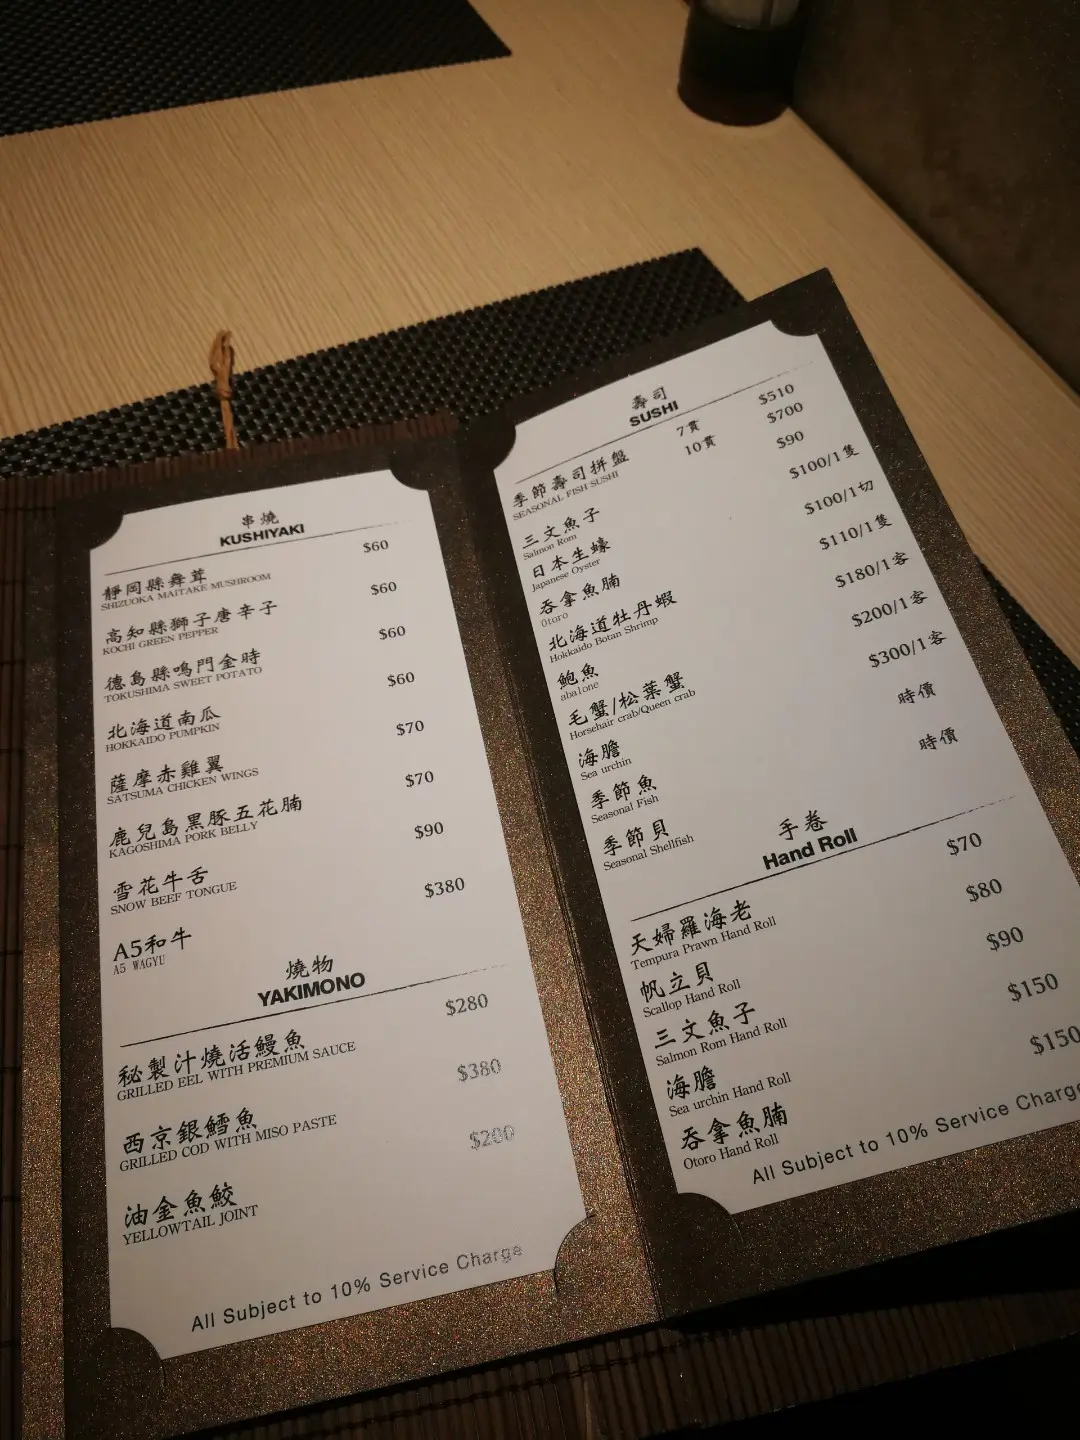 串燒
KUSHIYAKI
靜岡縣舞茸 $60
SHIZUOKA MAITAKE MUSHROOM
高知縣獅子唐辛子 $60
KOCHI GREEN PEPPER
德島縣鳴門金時 $60
TOKUSHIMA SWEET POTATO
北海道南瓜 $60
HOKKAIDO PUMPKIN
薩摩赤雞翼 $70
SATSUMA CHICKEN WINGS
鹿兒島黑豚五花腩 $70
KAGOSHIMA PORK BELLY
雪花牛舌 $90
SNOW BEEF TONGUE
A5和牛 $380
A5 WAGYU
燒物
YAKIMONO
秘製汁燒活鰻魚 $280
GRILLED EEL WITH PREMIUM SAUCE
西京銀鱈魚 $380
GRILLED COD WITH MISO PASTE
油金魚鮫 $200
YELLOWTAIL JOINT
All Subject to 10% Service Charge
壽司
SUSHI
季節壽司拼盤 7貫 $510
SEASONAL FISH SUSHI 10貫 $700
三文魚子 $90
Salmon Rom
日本生蠔 $100/1隻
Japanese Oyster
吞拿魚腩 $100/1切
Otoro
北海道牡丹蝦 $110/1隻
Hokkaido Botan Shrimp
鮑魚 $180/1客
abalone
毛蟹/松葉蟹 $200/1客
Horsehair crab/Queen crab
海膽 $300/1客
Sea urchin
季節魚 時價
Seasonal Fish
季節貝 時價
Seasonal Shellfish
手卷
Hand Roll
天婦羅海老 $70
Tempura Prawn Hand Roll
帆立貝 $80
Scallop Hand Roll
三文魚子 $90
Salmon Rom Hand Roll
海膽 $150
Sea urchin Hand Roll
吞拿魚腩 $150
Otoro Hand Roll
All Subject to 10% Service Charge